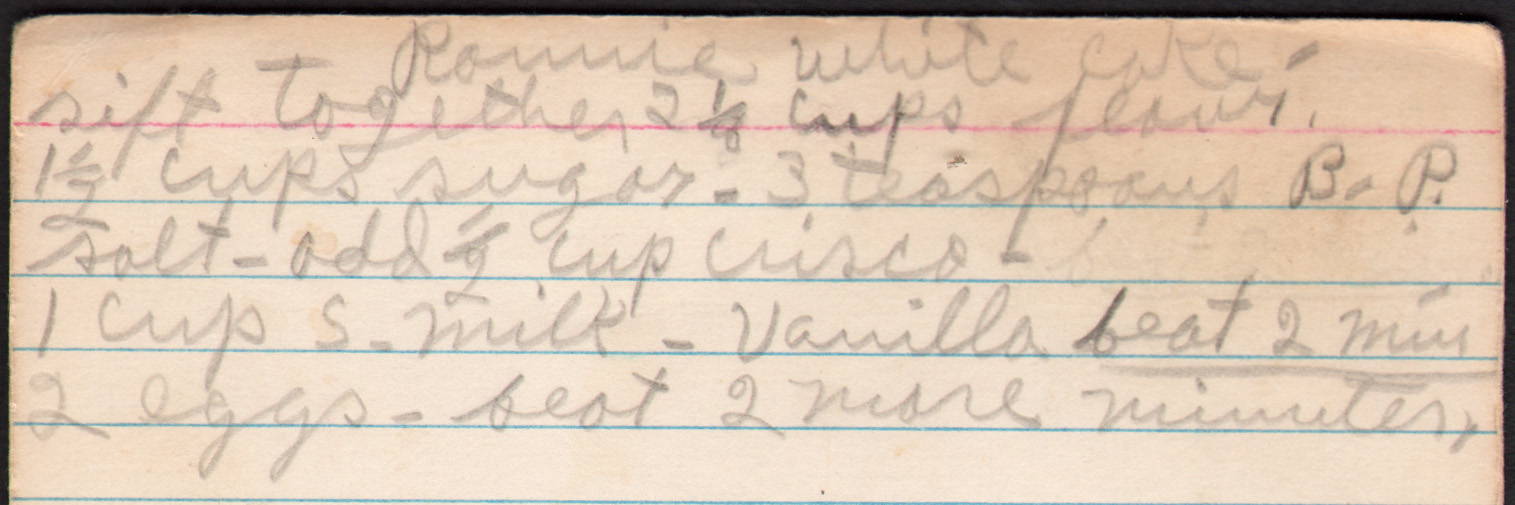 Ronnie white cake -
sift together 2 1/8 cups flour.
1 1/2 cups sugar - 3 teaspoons B. P.
salt - add 1/2 cup crisco -
1 cup s. milk - Vanilla beat 2 min
2 eggs - beat 2 more minutes,